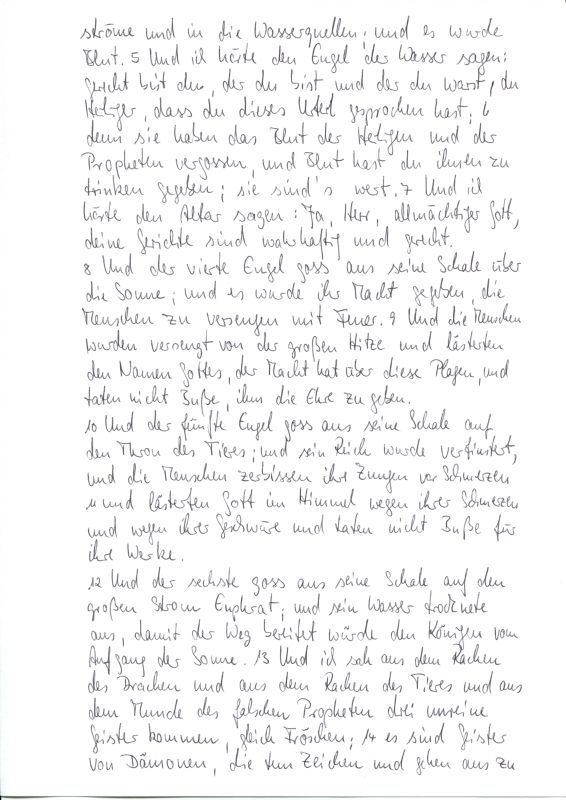 ströme und in die Wasserquellen; und es wurde
Blut. 5 Und ich hörte den Engel der Wasser sagen:
Gerecht bist du, der du bist und der du warst, du
Heiliger, dass du dieses Urteil gesprochen hast; 6
denn sie haben das Blut der Heiligen und der
Propheten vergossen, und Blut hast du ihnen zu
trinken gegeben; sie sind's wert. 7 Und ich
hörte den Altar sagen: Ja, Herr, allmächtiger Gott,
deine Gerichte sind wahrhaftig und gerecht.
8 Und der vierte Engel goss aus seine Schale über
die Sonne; und es wurde ihr Macht gegeben, die
Menschen zu versengen mit Feuer. 9 Und die Menschen
wurden versengt von der großen Hitze und lästerten
den Namen Gottes, der Macht hat über diese Plagen, und
taten nicht Buße, ihm die Ehre zu geben.
10 Und der fünfte Engel goss aus seine Schale auf
den Thron des Tieres; und sein Reich wurde verfinstert,
und die Menschen zerbissen ihre Zungen vor Schmerzen
11 und lästerten Gott im Himmel wegen ihrer Schmerzen
und wegen ihrer Geschwüre und taten nicht Buße für
ihre Werke.
12 Und der sechste goss aus seine Schale auf den
großen Strom Euphrat; und sein Wasser trocknete
aus, damit der Weg bereitet würde den Königen vom
Aufgang der Sonne. 13 Und ich sah aus dem Rachen
des Drachen und aus dem Rachen des Tieres und aus
dem Munde des falschen Propheten drei unreine
Geister kommen, gleich Fröschen; 14 es sind Geister
von Dämonen, die tun Zeichen und gehen aus zu